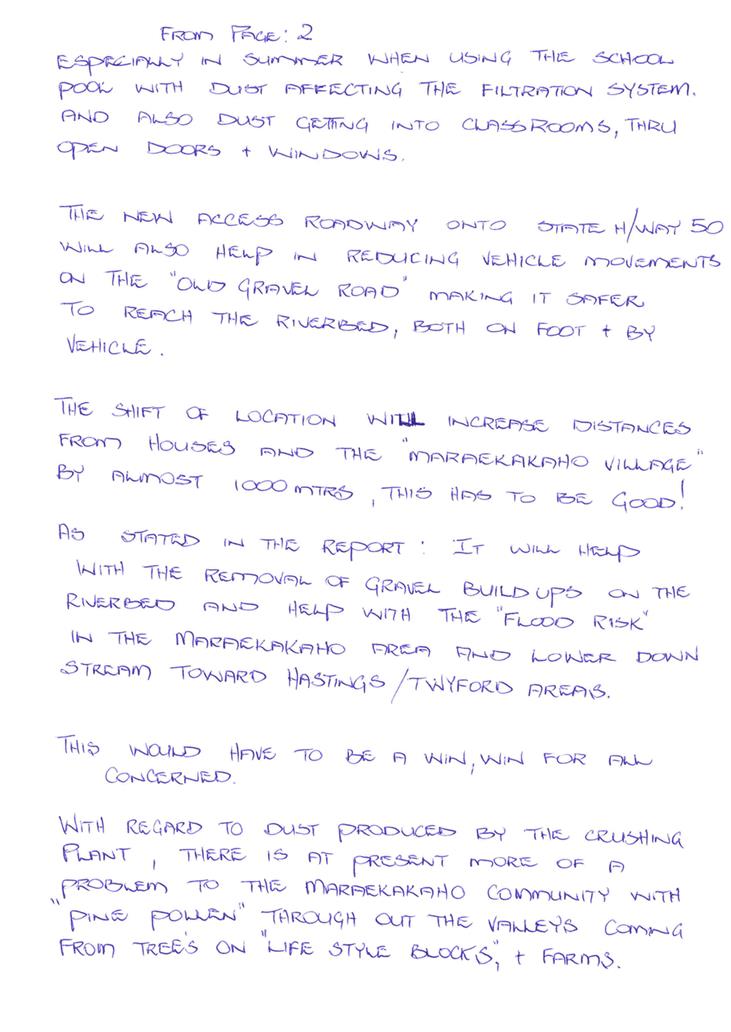 FROM PAGE: 2
ESPECIALLY IN SUMMER WHEN USING THE SCHOOL
POOL WITH DUST AFFECTING THE FILTRATION SYSTEM.
AND ALSO DUST GETTING INTO CLASSROOMS, THRU
OPEN DOORS + WINDOWS.
THE NEW ACCESS ROADWAY ONTO STATE H/WAY 50
WILL ALSO HELP IN REDUCING VEHICLE MOVEMENTS
ON THE "OLD GRAVEL ROAD" MAKING IT SAFER
TO REACH THE RIVERBED, BOTH ON FOOT + BY
VEHICLE.
THE SHIFT OF LOCATION WILL INCREASE DISTANCES
FROM HOUSES AND THE "MARAEKAKAHO VILLAGE"
BY ALMOST 1000 MTRS, THIS HAS TO BE GOOD!
AS STATED IN THE REPORT: IT WILL HELP
WITH THE REMOVAL OF GRAVEL BUILD UPS ON THE
RIVERBED AND HELP WITH THE "FLOOD RISK"
IN THE MARAEKAKAHO AREA AND LOWER DOWN
STREAM TOWARD HASTINGS/TWYFORD AREAS.
THIS WOULD HAVE TO BE A WIN, WIN FOR ALL
CONCERNED.
WITH REGARD TO DUST PRODUCED BY THE CRUSHING
PLANT, THERE IS AT PRESENT MORE OF A
PROBLEM TO THE MARAEKAKAHO COMMUNITY WITH
"PINE POLLEN" THROUGH OUT THE VALLEYS COMING
FROM TREES ON "LIFE STYLE BLOCKS", + FARMS.